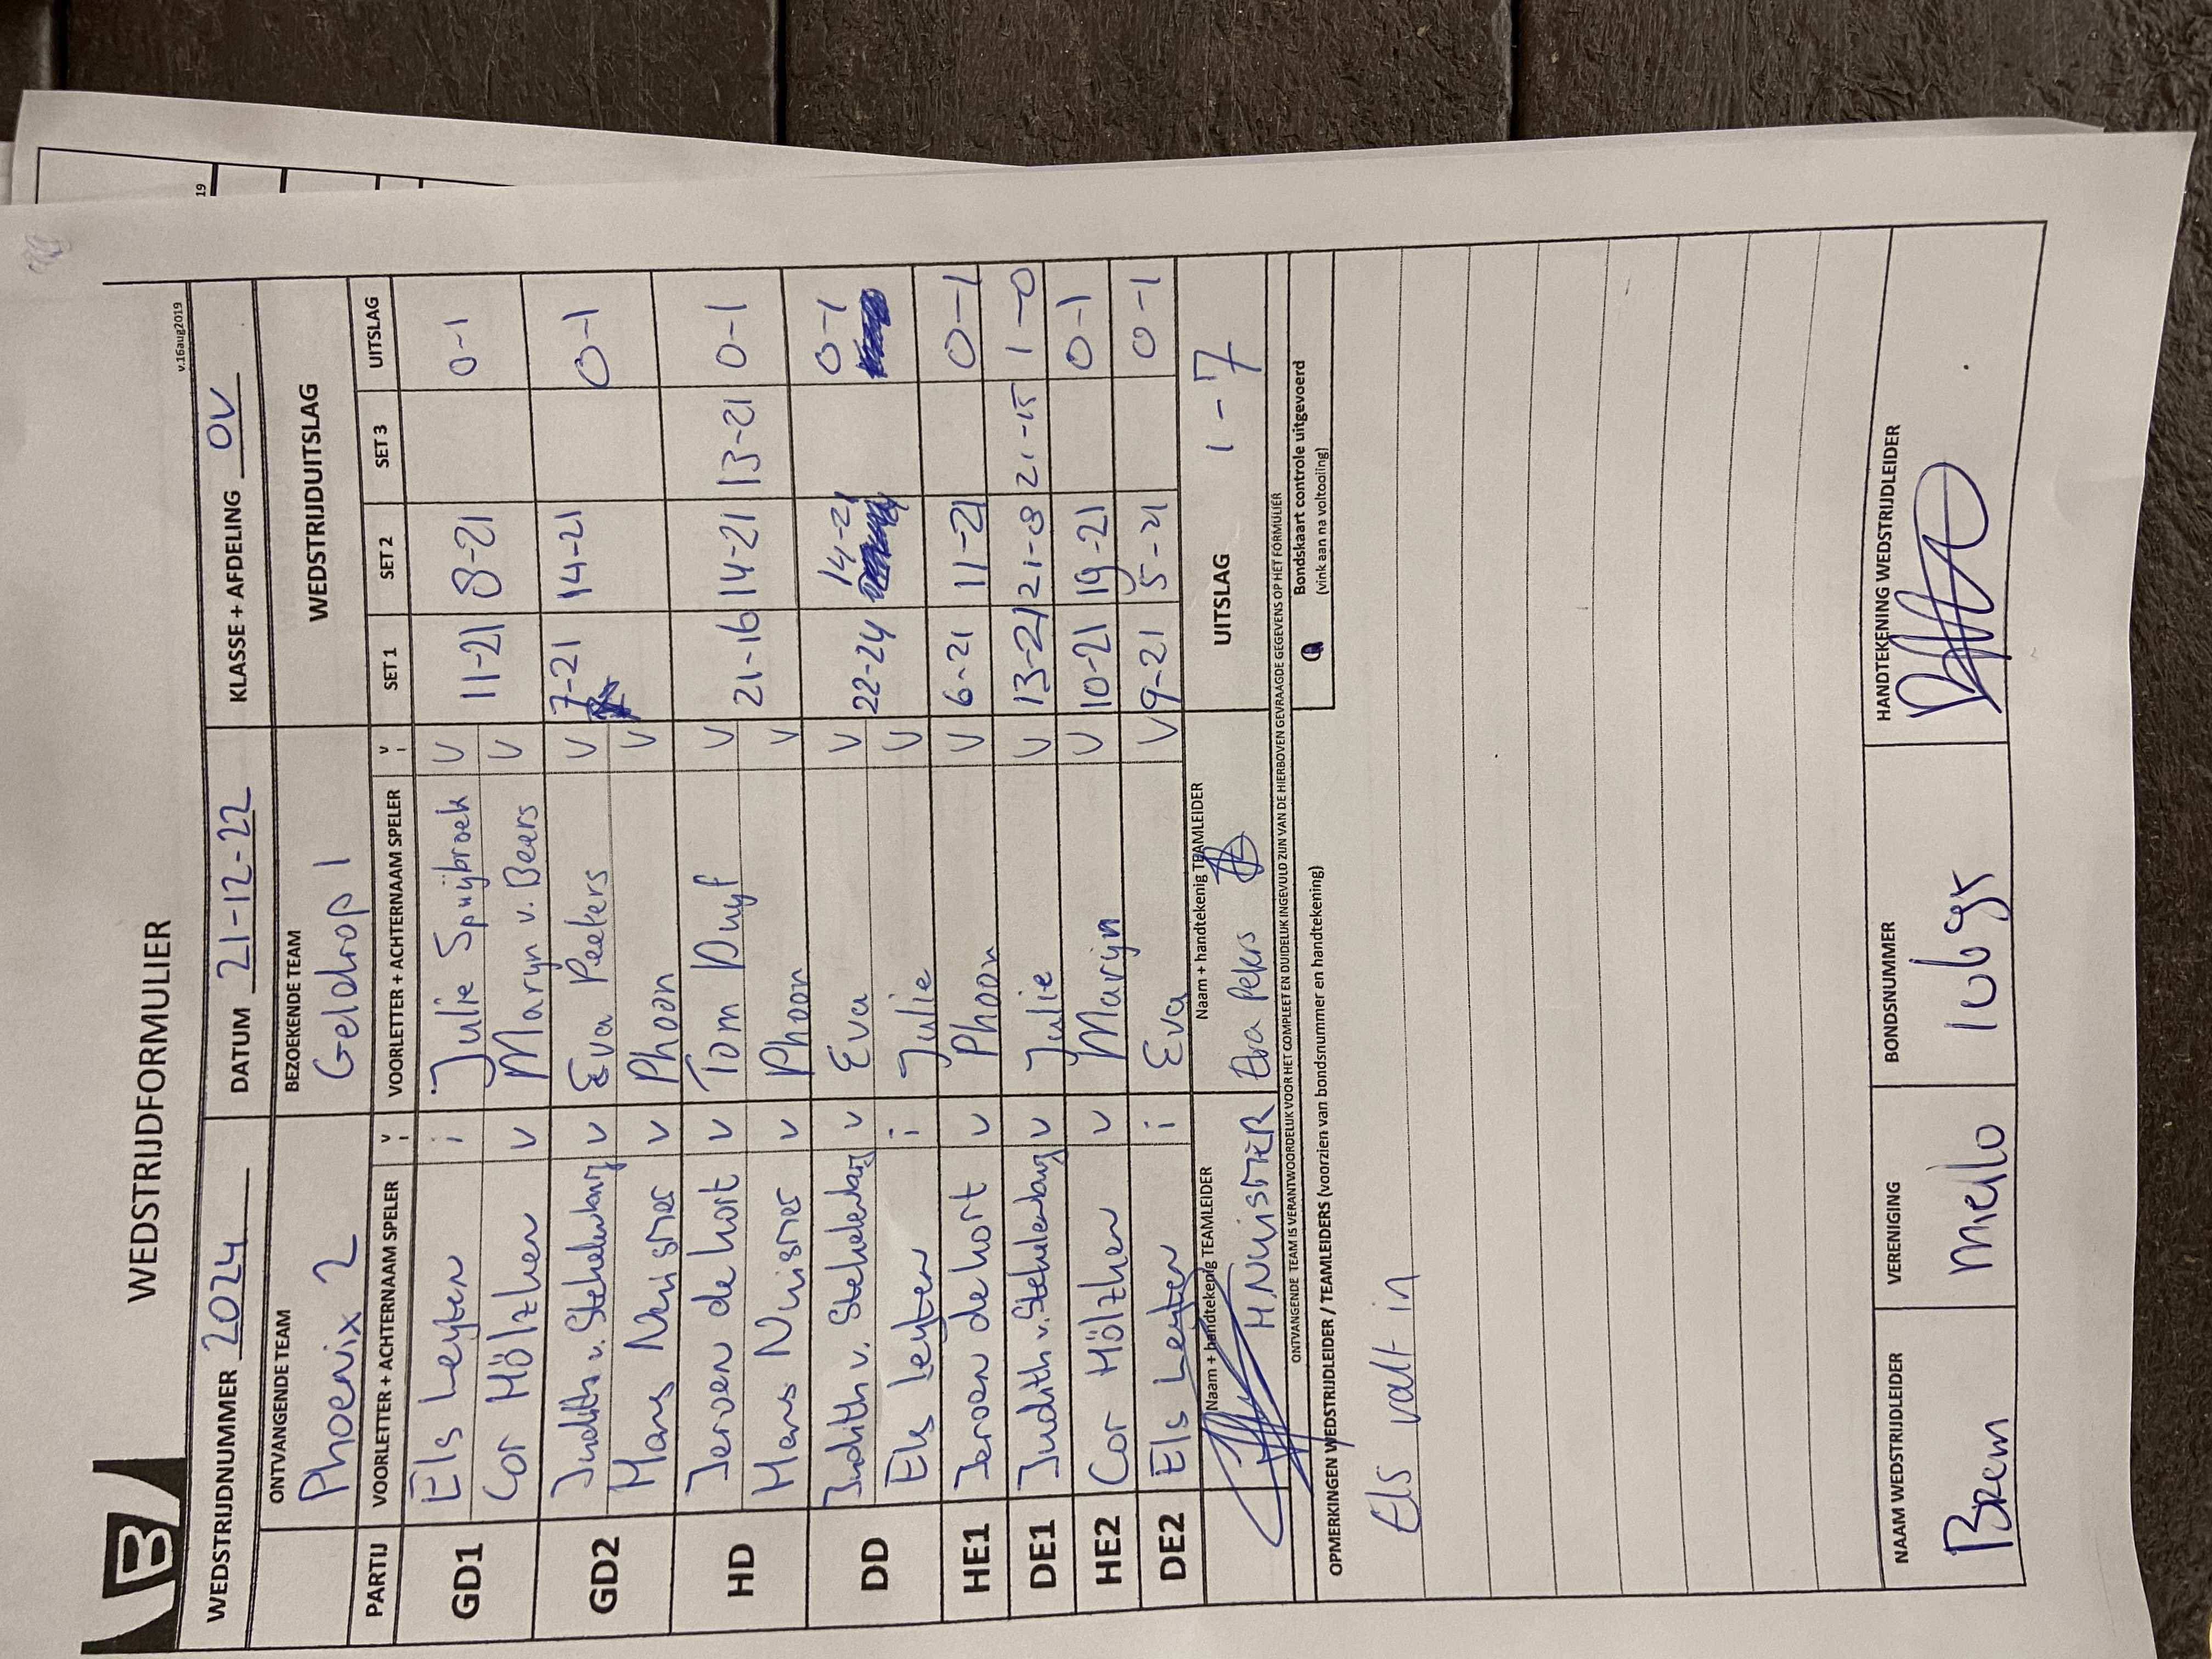 WEDSTRIJDFORMULIER
v.16aug2019
B
WEDSTRIJDNUMMER 2024 DATUM 21-12-22 KLASSE + AFDELING OV
ONTVANGENDE TEAM BEZOEKENDE TEAM WEDSTRIJDUITSLAG
Phoenix 2 Geldrop 1
PARTIJ VOORLETTER + ACHTERNAAM SPELER v i VOORLETTER + ACHTERNAAM SPELER v i SET 1 SET 2 SET 3 UITSLAG
GD1 Els Leyten i Julie Spuijbroek V 11-21 8-21 0-1
Cor Hölzken v Maryn v. Beers V
GD2 Judith v. Stekelenburg v Eva Peeters V 7-21 14-21 0-1
Hans Nuismer v Phoon V
HD Jeroen de hort v Tom Duyf V 21-16 14-21 13-21 0-1
Hans Nuismer v Phoon V
DD Judith v. Stekelenburg v Eva V 22-24 14-21 0-1
Els Leyten i Julie V
HE1 Jeroen de hort v Phoon V 6-21 11-21 0-1
DE1 Judith v. Stekelenburg v Julie V 13-21 21-8 21-15 1-0
HE2 Cor Hölzken v Marijn V 10-21 19-21 0-1
DE2 Els Leyten i Eva V 9-21 5-21 0-1
Naam + handtekenig TEAMLEIDER Naam + handtekenig TEAMLEIDER UITSLAG 1-7
H NUISMER Eva
ONTVANGENDE TEAM IS VERANTWOORDELIJK VOOR HET COMPLEET EN DUIDELIJK INGEVULD ZIJN VAN DE HIERBOVEN GEVRAAGDE GEGEVENS OP HET FORMULIER
OPMERKINGEN WEDSTRIJDLEIDER / TEAMLEIDERS (voorzien van bondsnummer en handtekening) Bondskaart controle uitgevoerd
(vink aan na voltooiing)
Els valt in
NAAM WEDSTRIJDLEIDER VERENIGING BONDSNUMMER HANDTEKENING WEDSTRIJDLEIDER
Brem
19